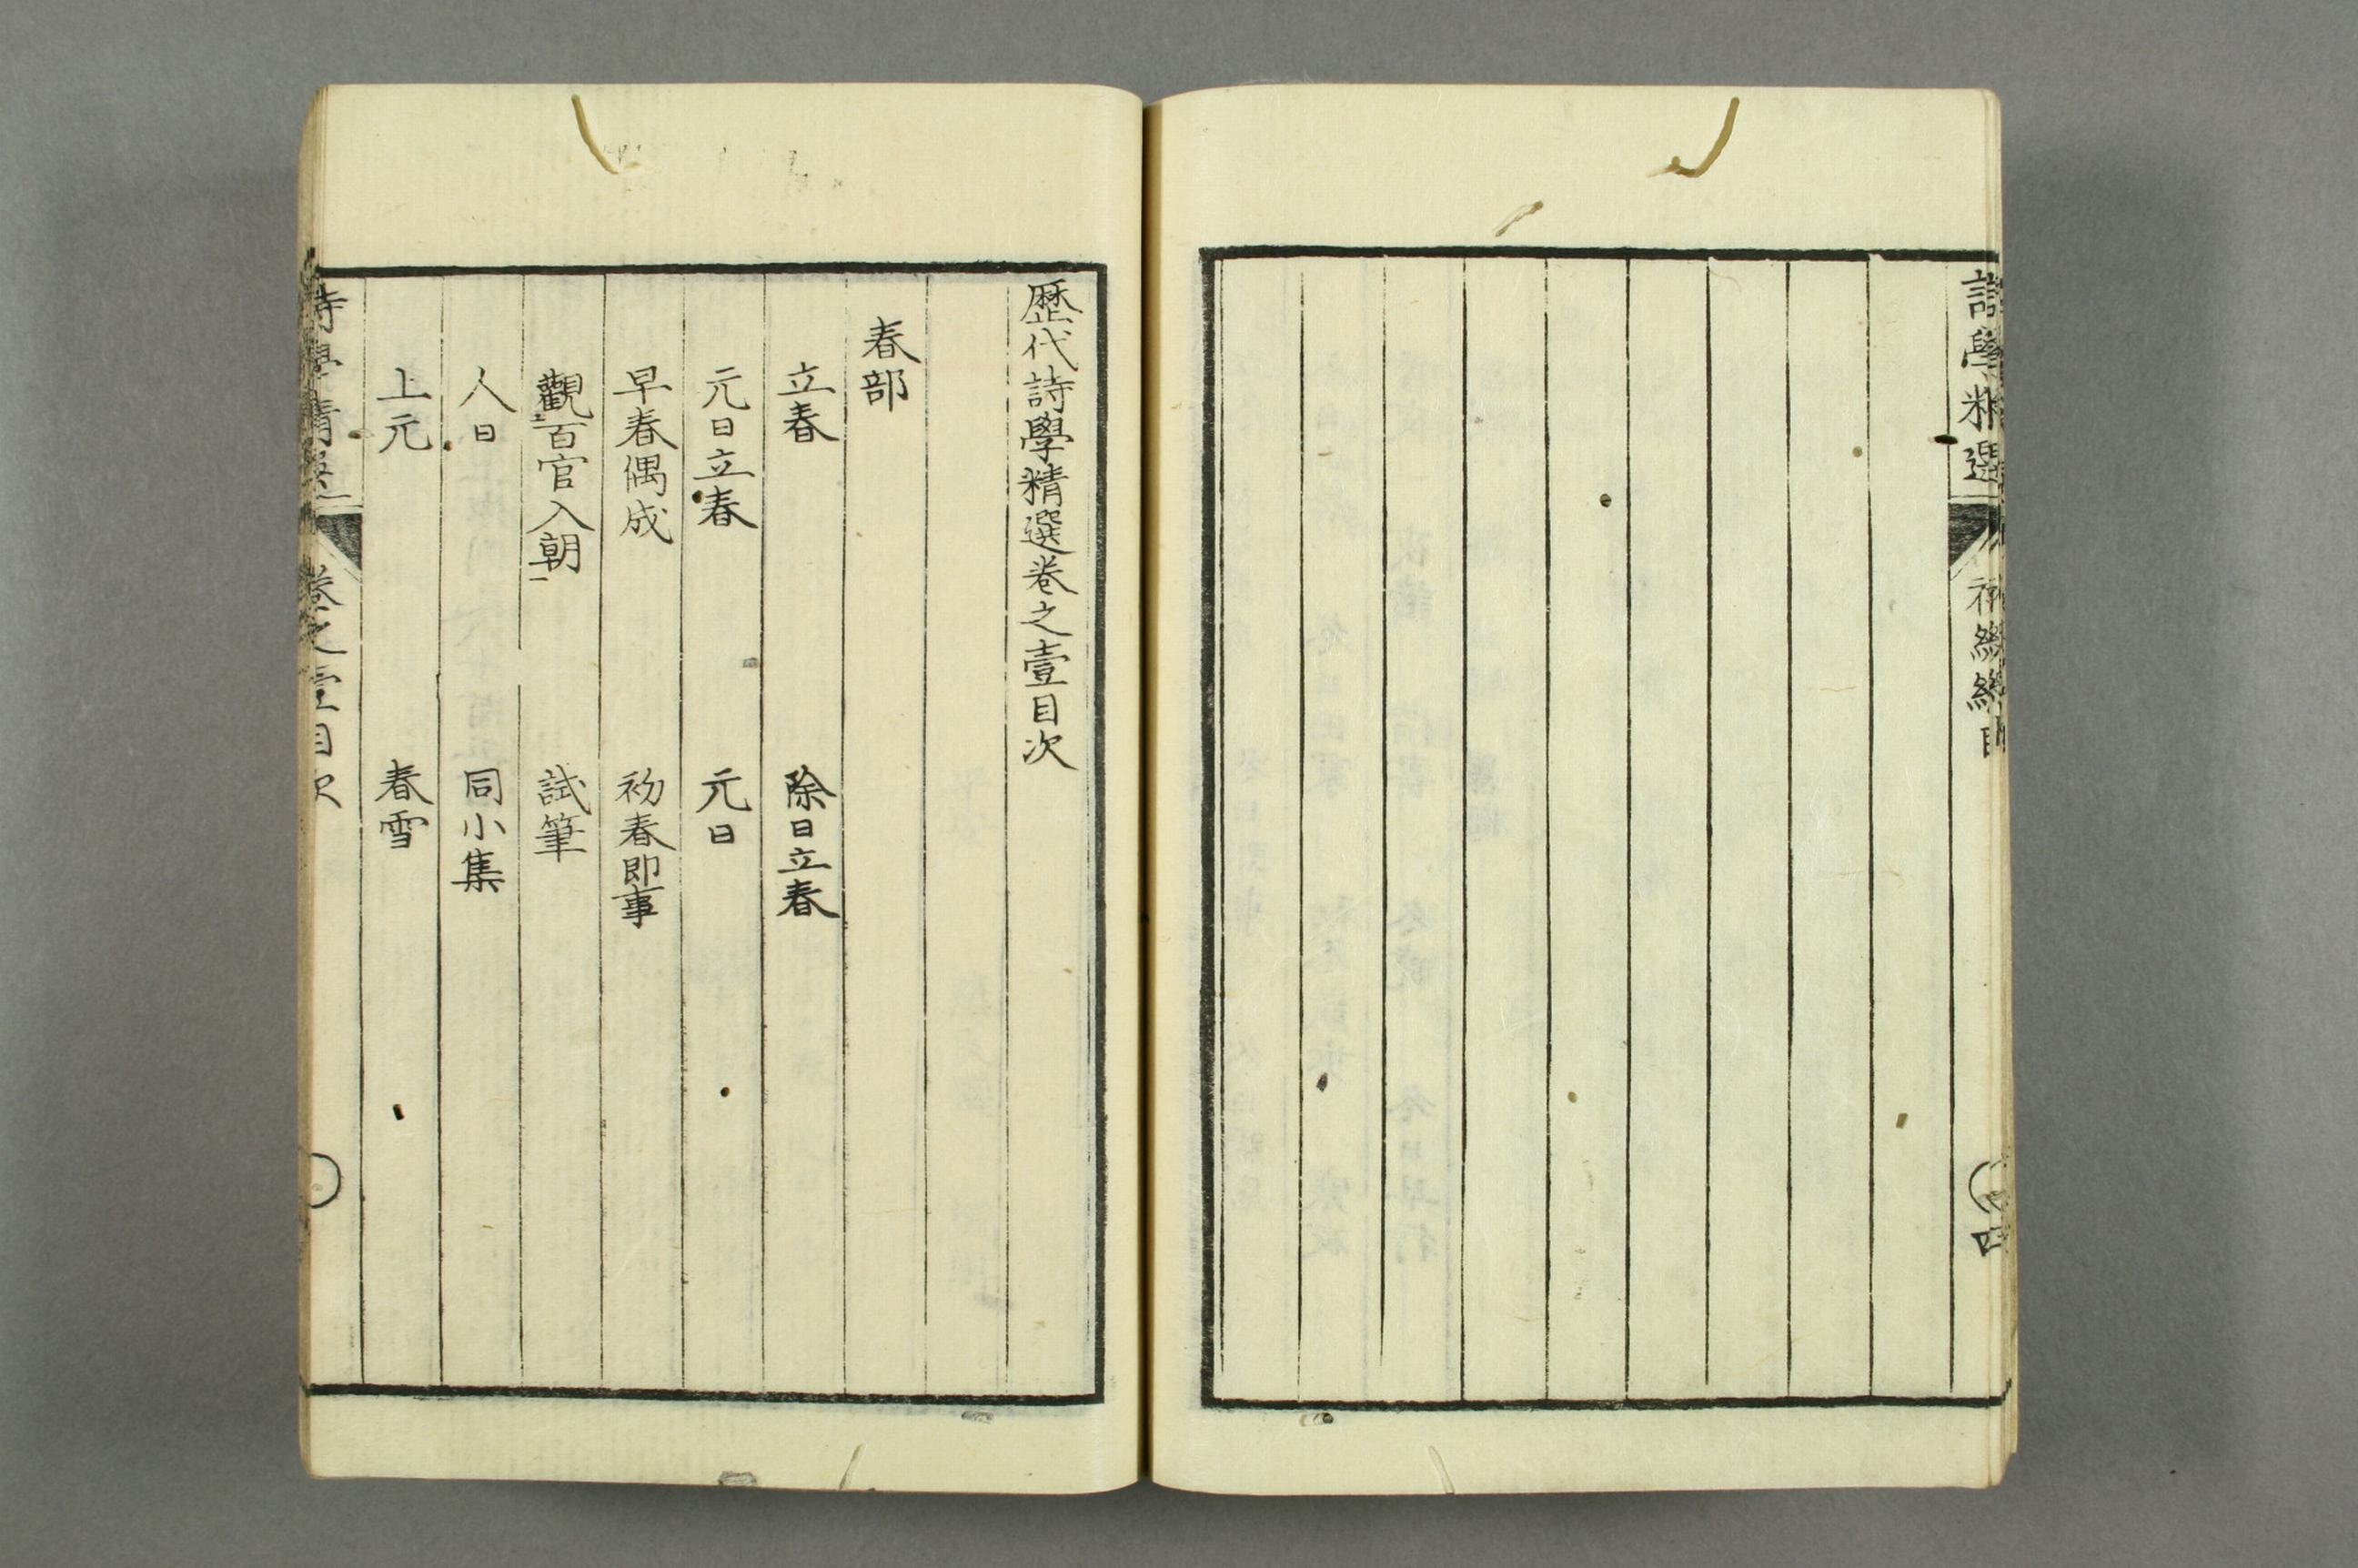 詩學精選
四
歷代詩學精選卷之壹目次
春部
立春
除日立春
元日立春
元日
早春偶成
初春即事
觀百官入朝
試筆
人日
同小集
上元
春雪
詩學精選
卷之壹目次